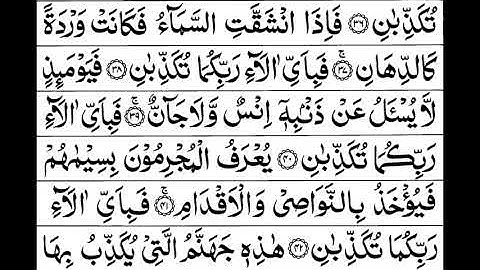 تُكَذِّبٰنِ ﴿۳۶﴾ فَاِذَا انْشَقَّتِ السَّمَآءُ فَكَانَتْ وَرْدَةً
كَالدِّهَانِ ﴿ۚ۳۷﴾ فَبِاَىِّ اٰلَآءِ رَبِّكُمَا تُكَذِّبٰنِ ﴿۳۸﴾ فَيَوْمَئِذٍ
لَّا يُسْئَلُ عَنْ ذَنْۢبِهٖۤ اِنْسٌ وَّلَا جَآنٌّ ﴿ۚ۳۹﴾ فَبِاَىِّ اٰلَآءِ
رَبِّكُمَا تُكَذِّبٰنِ ﴿۴۰﴾ يُعْرَفُ الْمُجْرِمُوْنَ بِسِيْمٰهُمْ
فَيُؤْخَذُ بِالنَّوَاصِىْ وَالْاَقْدَامِ ﴿ۚ۴۱﴾ فَبِاَىِّ اٰلَآءِ
رَبِّكُمَا تُكَذِّبٰنِ ﴿۴۲﴾ هٰذِهٖ جَهَنَّمُ الَّتِىْ يُكَذِّبُ بِهَا